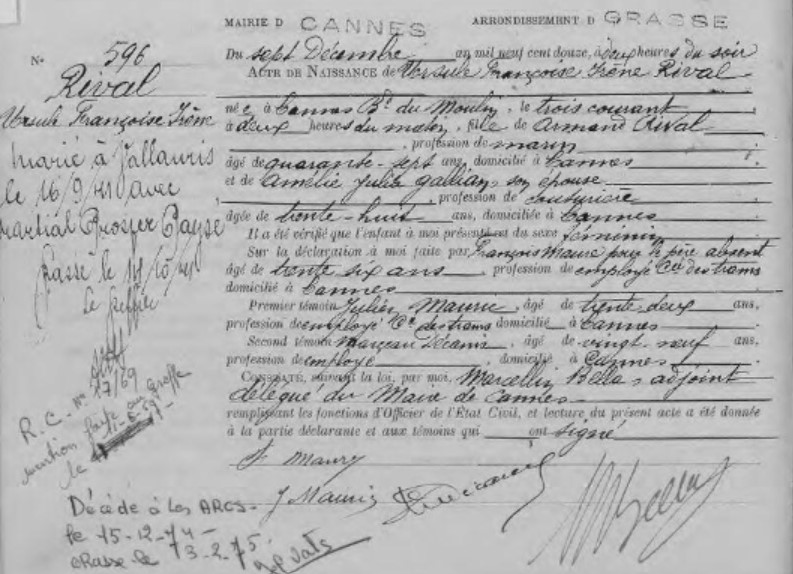 MAIRIE D CANNES ARRONDISSEMENT D GRASSE
N° 596
Rival
Ursule Françoise Irène
marié à Vallauris
le 16/9/41 avec
Martial Prosper Payse
Grasse le
Le greffier
R.C. N° 17/69
mention faite au Greffe
le
Décédé à Les ARCS-
le 15-12-74-
Grasse le 13-2-75.
Du sept Décembre an mil neuf cent douze, à deux heures du soir
ACTE DE NAISSANCE de Ursule Françoise Irène Rival
née à Cannes Bd du Moulin, le trois courant
à deux heures du matin, fille de Armand Rival
, profession de marin
âgé de quarante-sept ans, domicilié à Cannes
et de Amélie Julie Gallian, son épouse
, profession de couturière
âgée de trente-huit ans, domiciliée à Cannes
Il a été vérifié que l'enfant à moi présenté est du sexe féminin
Sur la déclaration à moi faite par François Maure pour le père absent
âgé de trente six ans, profession de employé Cie des trams
domicilié à Cannes
Premier témoin Julien Maurie, âgé de trente-deux ans,
profession de employé Cie des trams domicilié à Cannes
Second témoin Marceau Décanis, âgé de vingt-neuf ans,
profession de employé, domicilié à Cannes
CONSTATÉ, suivant la loi, par moi, Marcellin Bellas adjoint
délégué du Maire de Cannes
remplissant les fonctions d'Officier de l'État Civil, et lecture du présent acte a été donnée
à la partie déclarante et aux témoins qui ont signé